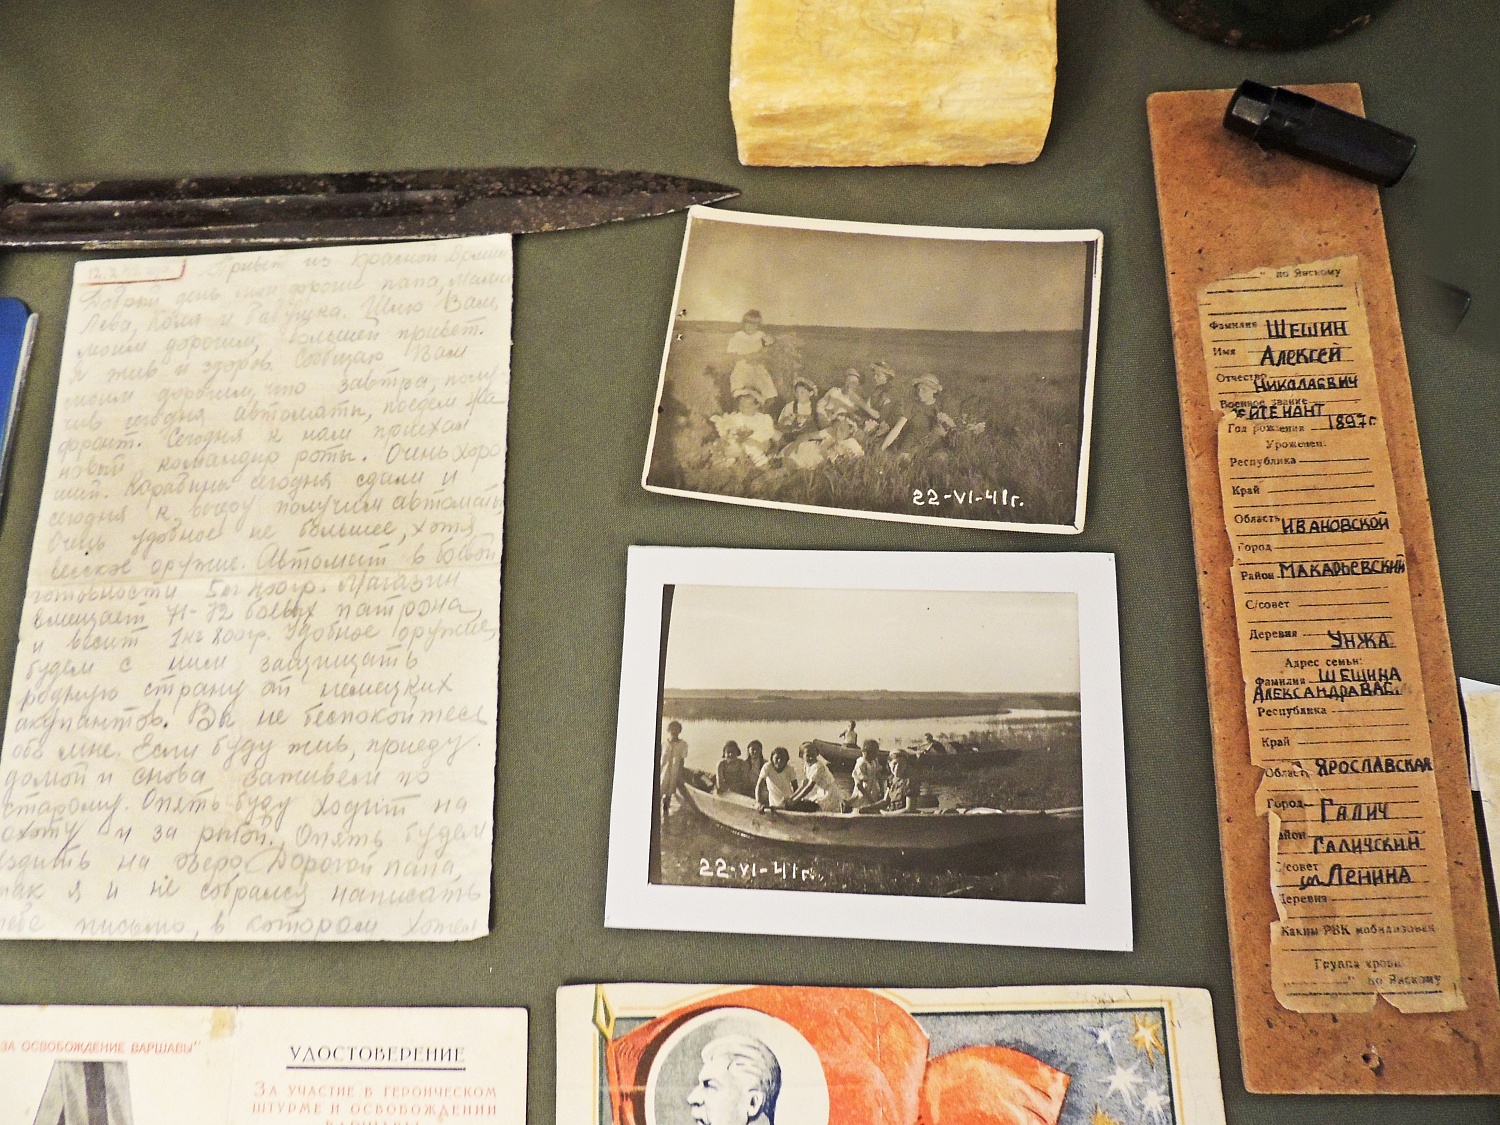 Привет из Красной Армии
Добрый день мои дорогие папа, Мама
Лева, Коля и бабушка. Шлю Вам
моим дорогим, большей привет.
Я жив и здоров. Сообщаю Вам
моим дорогим, что завтра, полу-
чив сегодня автоматы, поедем на
фронт. Сегодня к нам приехал
новый командир роты. Очень хоро
ший. Карабины сегодня сдали и
сегодня к вечеру получим автоматы,
Очень удобное не большее, хотя
веское оружие. Автомат в боевой
готовности 5кг 400гр. Магазин
вмещает 71-72 боевых патрона,
и весит 1кг 800гр. Удобное оружие,
будем с ним защищать
родную страну от немецких
акупантов. Вы не беспокойтесь
обо мне. Если буду жив, приеду
домой и снова заживем по
старому. Опять буду ходить на
охоту и за рыбой. Опять будем
ездить на озеро. Дорогой папа,
так я и не собрался написать
тебе письмо, в котором хотел
22-VI-41г.
22-VI-41г.
" по Янскому
Фамилия ШЕШИН
Имя АЛЕКСЕЙ
Отчество НИКОЛАЕВИЧ
Военное звание
ЛЕЙТЕНАНТ
Год рождения 1897г
Уроженец:
Республика
Край
Область ИВАНОВСКОЙ
Город
Район МАКАРЬЕВСКИЙ
С/совет
Деревня УНЖА
Адрес семьи:
Фамилия ШЕШИНА
АЛЕКСАНДРА ВАС.
Республика
Край
Область ЯРОСЛАВСКАЯ
Город ГАЛИЧ
айон ГАЛИЧСКИЙ
/совет ул. ЛЕНИНА
Деревня
Каким РВК мобилизован
Группа крови
" по Янскому
ЗА ОСВОБОЖДЕНИЕ ВАРШАВЫ"
УДОСТОВЕРЕНИЕ
ЗА УЧАСТИЕ В ГЕРОИЧЕСКОМ
ШТУРМЕ И ОСВОБОЖДЕНИИ
ВАРШАВЫ